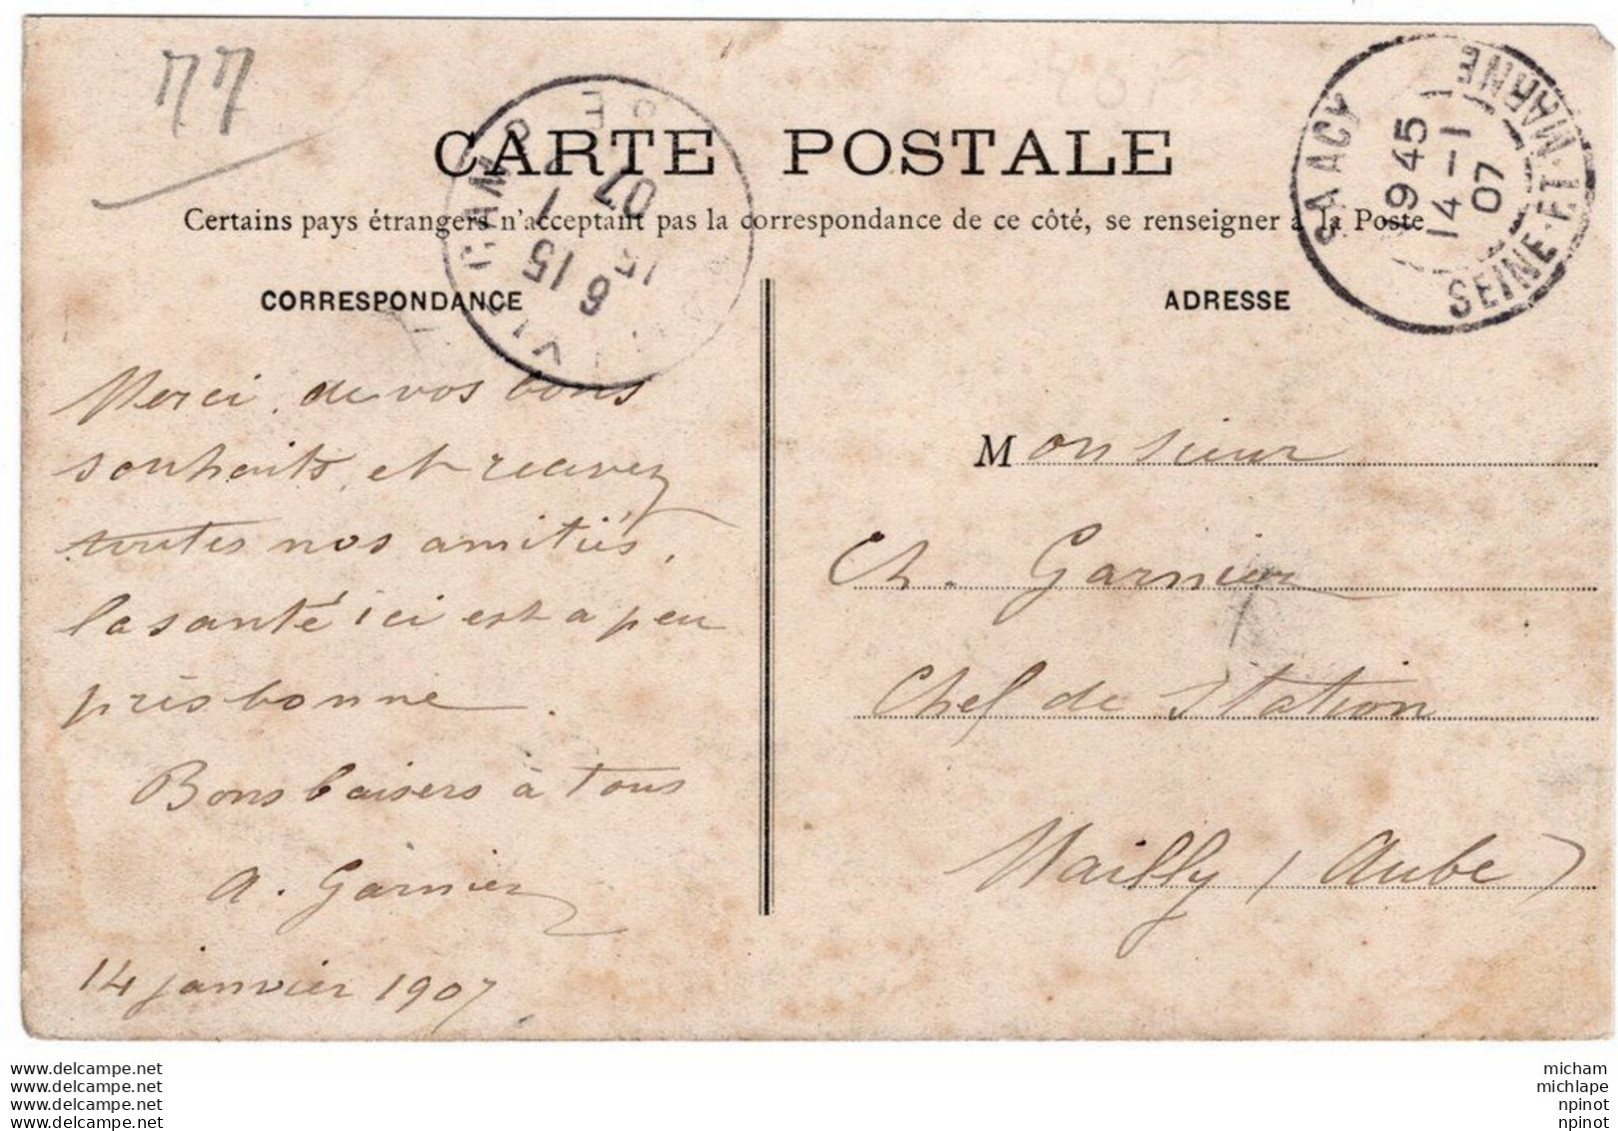 77
CARTE POSTALE
Certains pays étrangers n'acceptent pas la correspondance de ce côté, se renseigner à la Poste
CORRESPONDANCE
ADRESSE
SAACY
SEINE-ET-MARNE
9 45
14 - 1
07
6 15
15 1
07
Merci de vos bons
souhaits, et recevez
toutes nos amitiés,
la santé ici est a peu
près bonne.
Bons baisers à tous
A. Garnier
14 janvier 1907
Monsieur
Ch. Garnier
Chef de Station
Mailly (Aube)
www.delcampe.net
www.delcampe.net
www.delcampe.net
www.delcampe.net
micham
michlape
npinot
npinot